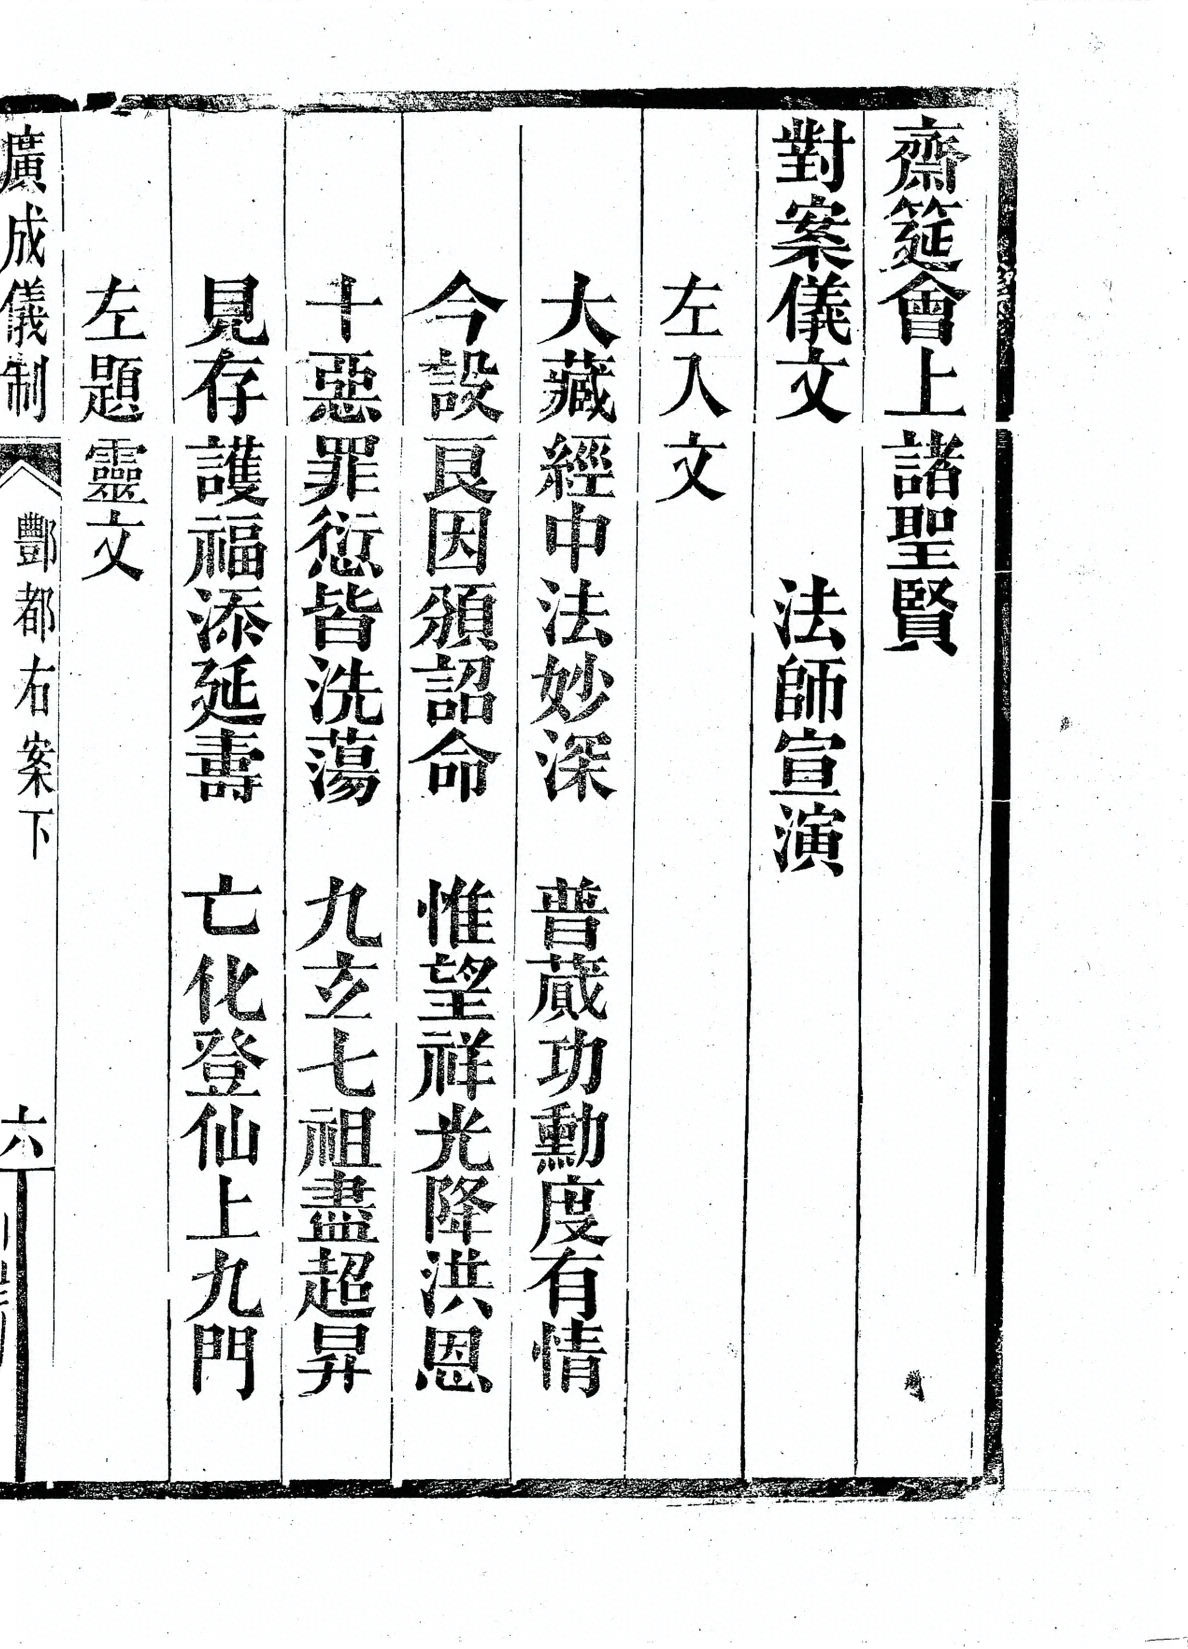 齋筵會上諸聖賢
對案儀文　法師宣演
左入文
大藏經中法妙深　普蕆功勳度有情
今設良因頒詔命　惟望祥光降洪恩
十惡罪愆皆洗蕩　九玄七祖盡超昇
見存護福添延壽　亡化登仙上九門
左題靈文
廣成儀制　酆都右案下　六